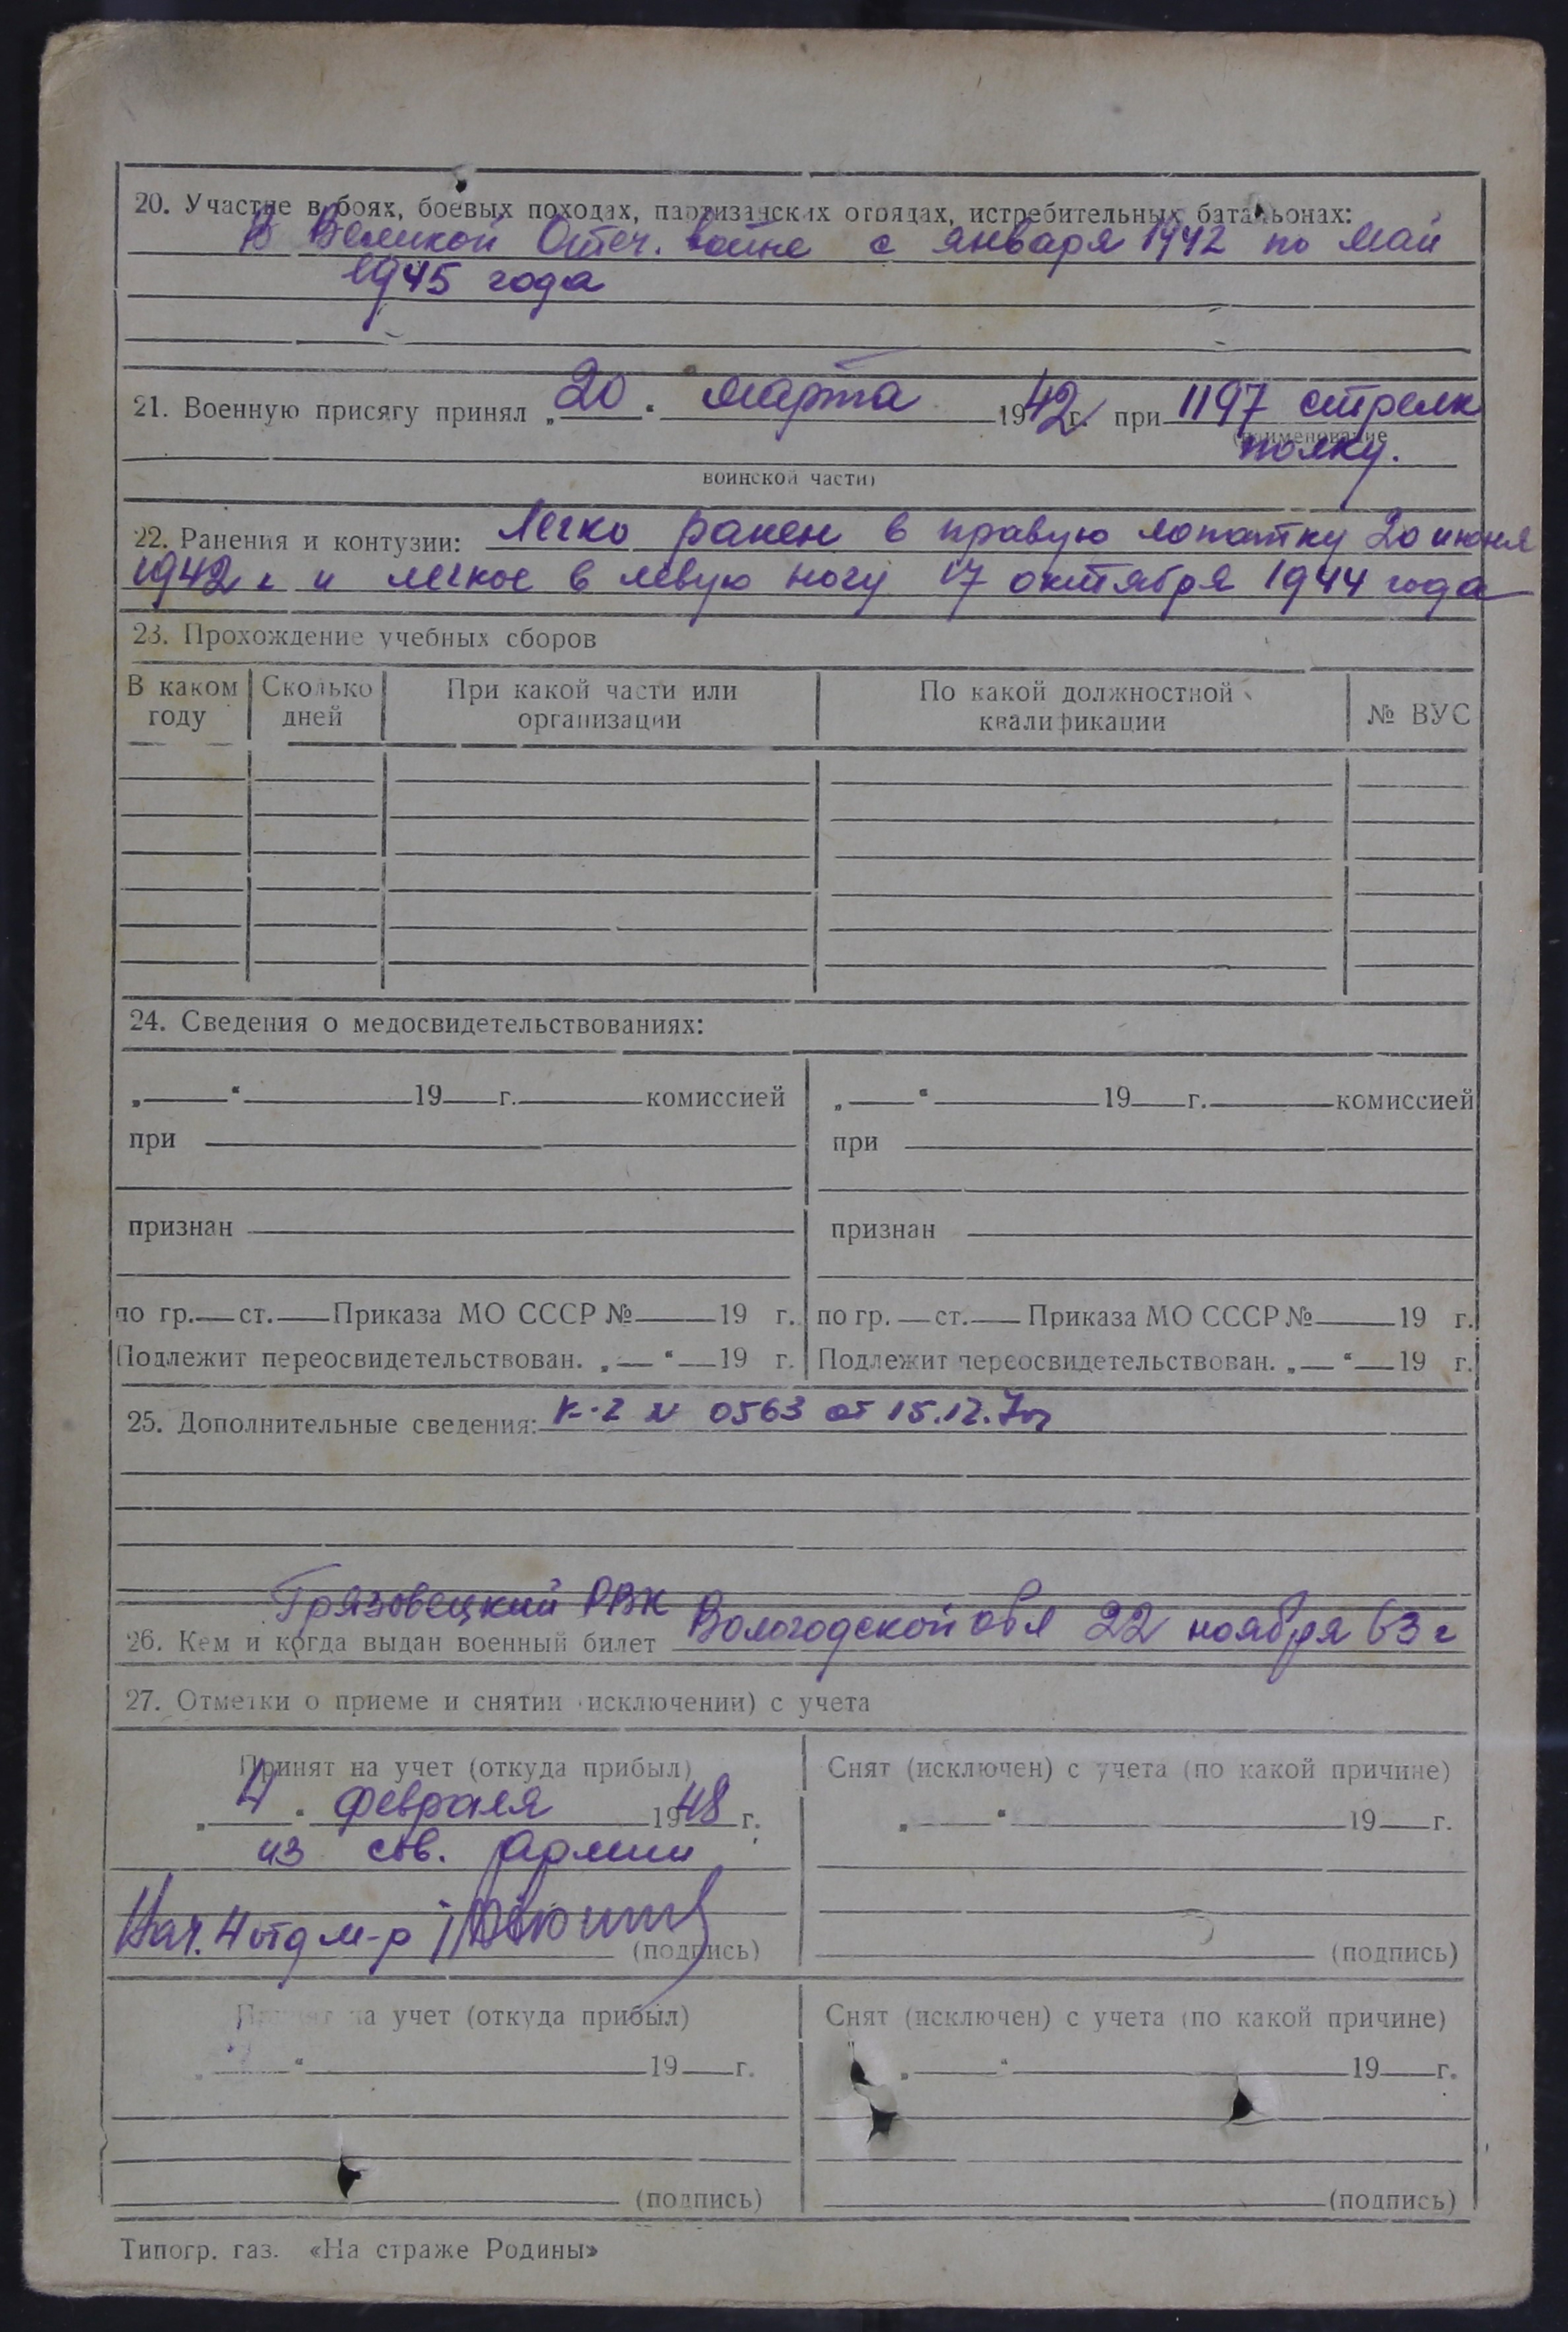 20. Участие в боях, боевых походах, партизанских отрядах, истребительных батальонах:
В Великой Отеч. войне с января 1942 по май
1945 года
21. Военную присягу принял „20“ марта 1942 г. при 1197 стрелк
(наименование
полку.
воинской части)
22. Ранения и контузии: Легко ранен в правую лопатку 20 июня
1942 г и легкое в левую ногу 17 октября 1944 года
23. Прохождение учебных сборов
В каком году | Сколько дней | При какой части или организации | По какой должностной квалификации | № ВУС
24. Сведения о медосвидетельствованиях:
„ “ 19 г. комиссией | „ “ 19 г. комиссией
при | при
признан | признан
по гр. ст. Приказа МО СССР № 19 г. | по гр. ст. Приказа МО СССР № 19 г.
Подлежит переосвидетельствован. „ “ 19 г. | Подлежит переосвидетельствован. „ “ 19 г.
25. Дополнительные сведения: К-2 N 0563 от 15.12.
Грязовецкий РВК
26. Кем и когда выдан военный билет Вологодской обл 22 ноября 63 г
27. Отметки о приеме и снятии (исключении) с учета
Принят на учет (откуда прибыл) | Снят (исключен) с учета (по какой причине)
„4“ февраля 1948 г. | „ “ 19 г.
из сов. Армии
Нач. 4 отд м-р (подпись) | (подпись)
Принят на учет (откуда прибыл) | Снят (исключен) с учета (по какой причине)
„ “ 19 г. | „ “ 19 г.
(подпись) | (подпись)
Типогр. газ. «На страже Родины»